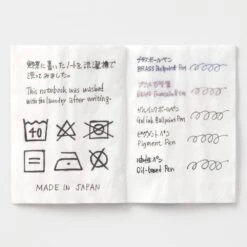 洗濯機で
洗ってみました。
This notebook was washed
with the laundry after writing.
40
MADE IN JAPAN
ブラスボールペン
BRASS Ballpoint Pen
ブラス万年筆
BRASS Fountain Pen
ゲルインクボールペン
Gel Ink Ballpoint Pen
ピグメントペン
Pigment Pen
油性ペン
Oil-based Pen